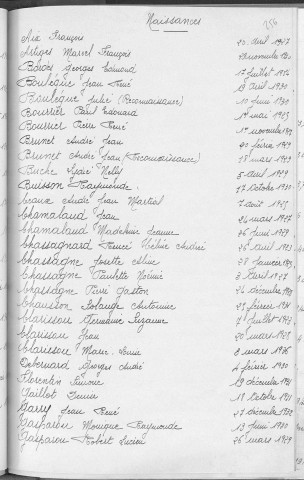 Naissances
256
Aix François 20 avril 1927
Artiges Marcel François
Bardes Georges Edmond 17 juillet 1926
Boulègue Jean René 19 avril 1930
Boulègue Julie (Reconnaissance) 10 juin 1930
Bourrier Paul Edouard 1er mai 1923
Bourrier Pierre René 1er novembre
Brunet André Jean février 1927
Brunet André Jean (Reconnaissance) 18 mars 1927
Buche Lydie Nelly 5 avril 1929
Buisson Raymonde 17 octobre 1930
Caux André Jean Martial 7 août 1925
Chamalaud Jean 26 mars 1927
Chamalaud Madeleine Jeanne 26 juin 1929
Chassagnard Hélène André 26 avril 1923
Chassagne Josette 28 janvier
Chassagne Paulette Noémie 3 avril 1927
Chassagne René Gaston 24 décembre
Chausson Solange Antonine 23 février
Clarissou Germaine Suzanne 7 juillet
Clarissou Jean 20 mars 1925
Clarissou Marie Louise 8 mars 1926
Debernard Georges André 4 février 1930
Florentin Simone 19 décembre
Gaillot 18 octobre 1921
Garry Jean René 27 décembre
Gasparoux Monique Raymonde 13 juin 1930
Gasparoux Robert Lucien 26 mars 1929